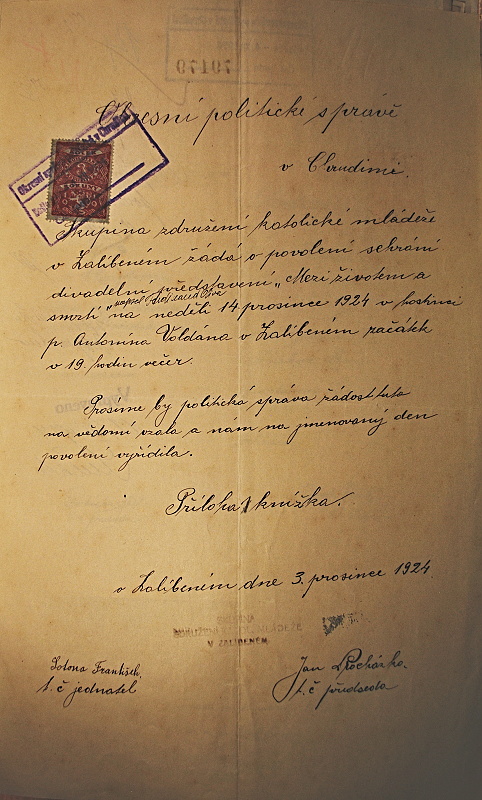 70179
Okresní politické správě
v Chrudimi.
Skupina združení katolické mládeže
v Zalíbeném žádá o povolení sehrání
divadelní představení „Mezi životem a
smrtí" na neděli 14 prosince 1924 v hostinci
p. Antonína Voldána v Zalíbeném začátek
v 19. hodin večer.
Prosíme by politická správa žádost tuto
na vědomí vzala a nám na jmenovaný den
povolení vyřídila.
Příloha 1 knížka.
v Zalíbeném dne 3. prosince 1924
V ZALÍBENÉM.
František
t. č jednatel
Jan
t. č předseda